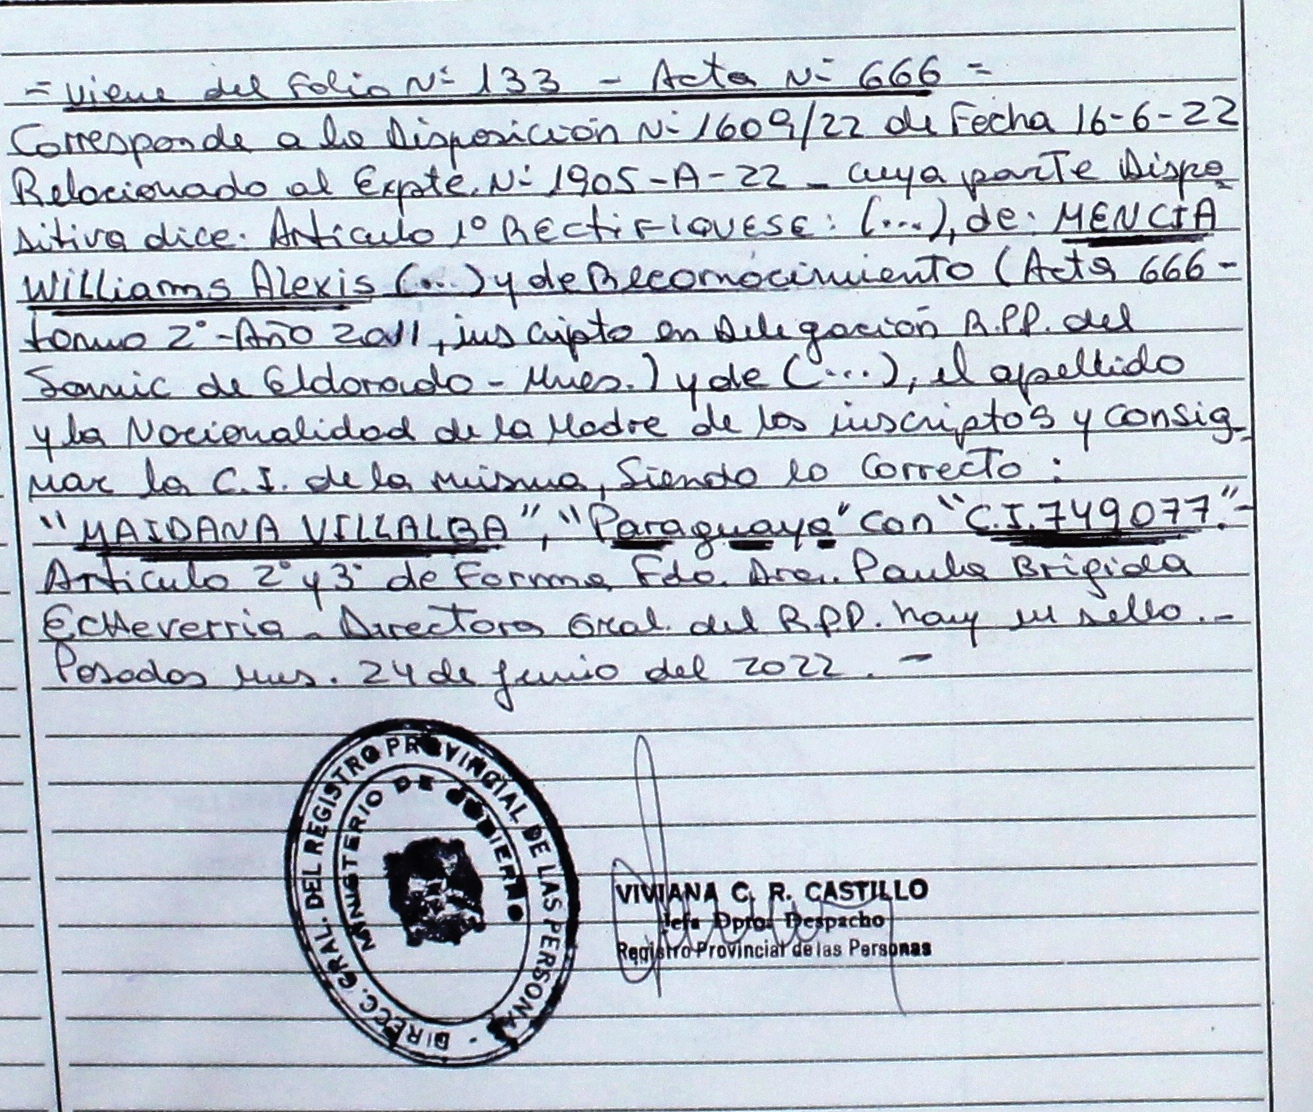 = Viene del Folio Nº 133 - Acta Nº 666 =
Corresponde a la Disposición Nº 1609/22 de Fecha 16-6-22
Relacionado al Expte. Nº 1905-A-22 - cuya parte Dispo
sitiva dice: Artículo 1º RECTIFIQUESE: (...), de: MENCIA
Williams Alexis (...) y de Reconocimiento (Acta 666-
tomo 2º - Año 2011, inscripto en Delegación R.P.P. del
Samic de Eldorado - Mnes.) y de (...), el apellido
y la Nacionalidad de la Madre de los inscriptos y consig-
nar la C.I. de la misma, Siendo lo Correcto:
"MAIDANA VILLALBA", "Paraguaya" con "C.I. 749077".-
Artículo 2º y 3º de Forma, Fdo. Dra. Paula Brigida
Echeverria - Directora Gral. del R.P.P. hay un sello.-
Posadas Mnes. 24 de Junio del 2022. -
DIRECC. GRAL. DEL REGISTRO PROVINCIAL DE LAS PERSONAS -
MINISTERIO DE GOBIERNO
VIVIANA C. R. CASTILLO
Jefa Dpto. Despacho
Registro Provincial de las Personas